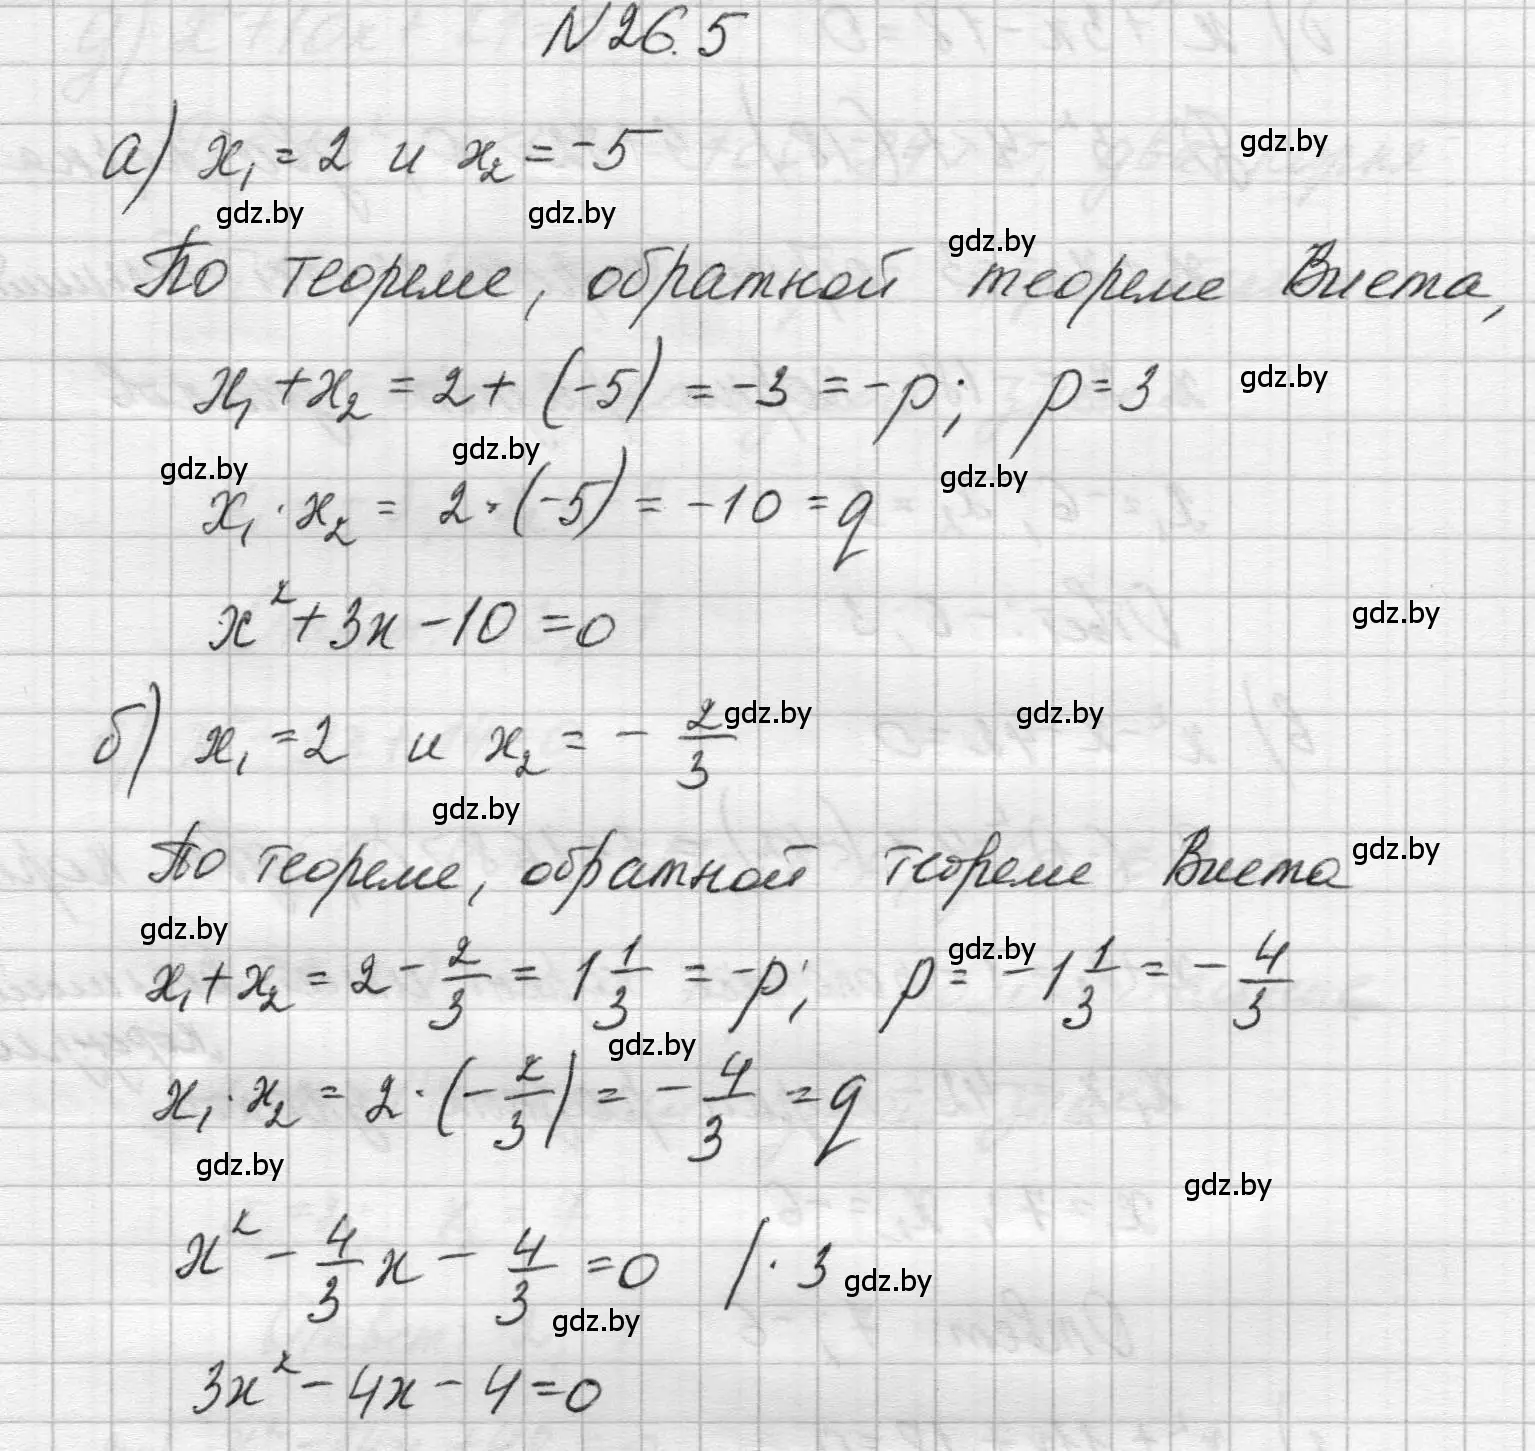 N26.5
а) x₁ = 2 и x₂ = -5
gdz.by
gdz.by gdz.by
gdz.by
По теореме, обратной теореме Виета,
x₁ + x₂ = 2 + (-5) = -3 = -p; p = 3
gdz.by
gdz.by gdz.by gdz.by
x₁ · x₂ = 2 · (-5) = -10 = q
x² + 3x - 10 = 0
gdz.by
б) x₁ = 2 и x₂ = - 2/3
gdz.by gdz.by
gdz.by
По теореме, обратной теореме Виета
gdz.by
gdz.by gdz.by
x₁ + x₂ = 2 - 2/3 = 1 1/3 = -p; p = -1 1/3 = - 4/3
gdz.by
x₁ · x₂ = 2 · (- 2/3) = - 4/3 = q
gdz.by gdz.by
x² - 4/3 x - 4/3 = 0 / · 3
gdz.by
gdz.by
3x² - 4x - 4 = 0